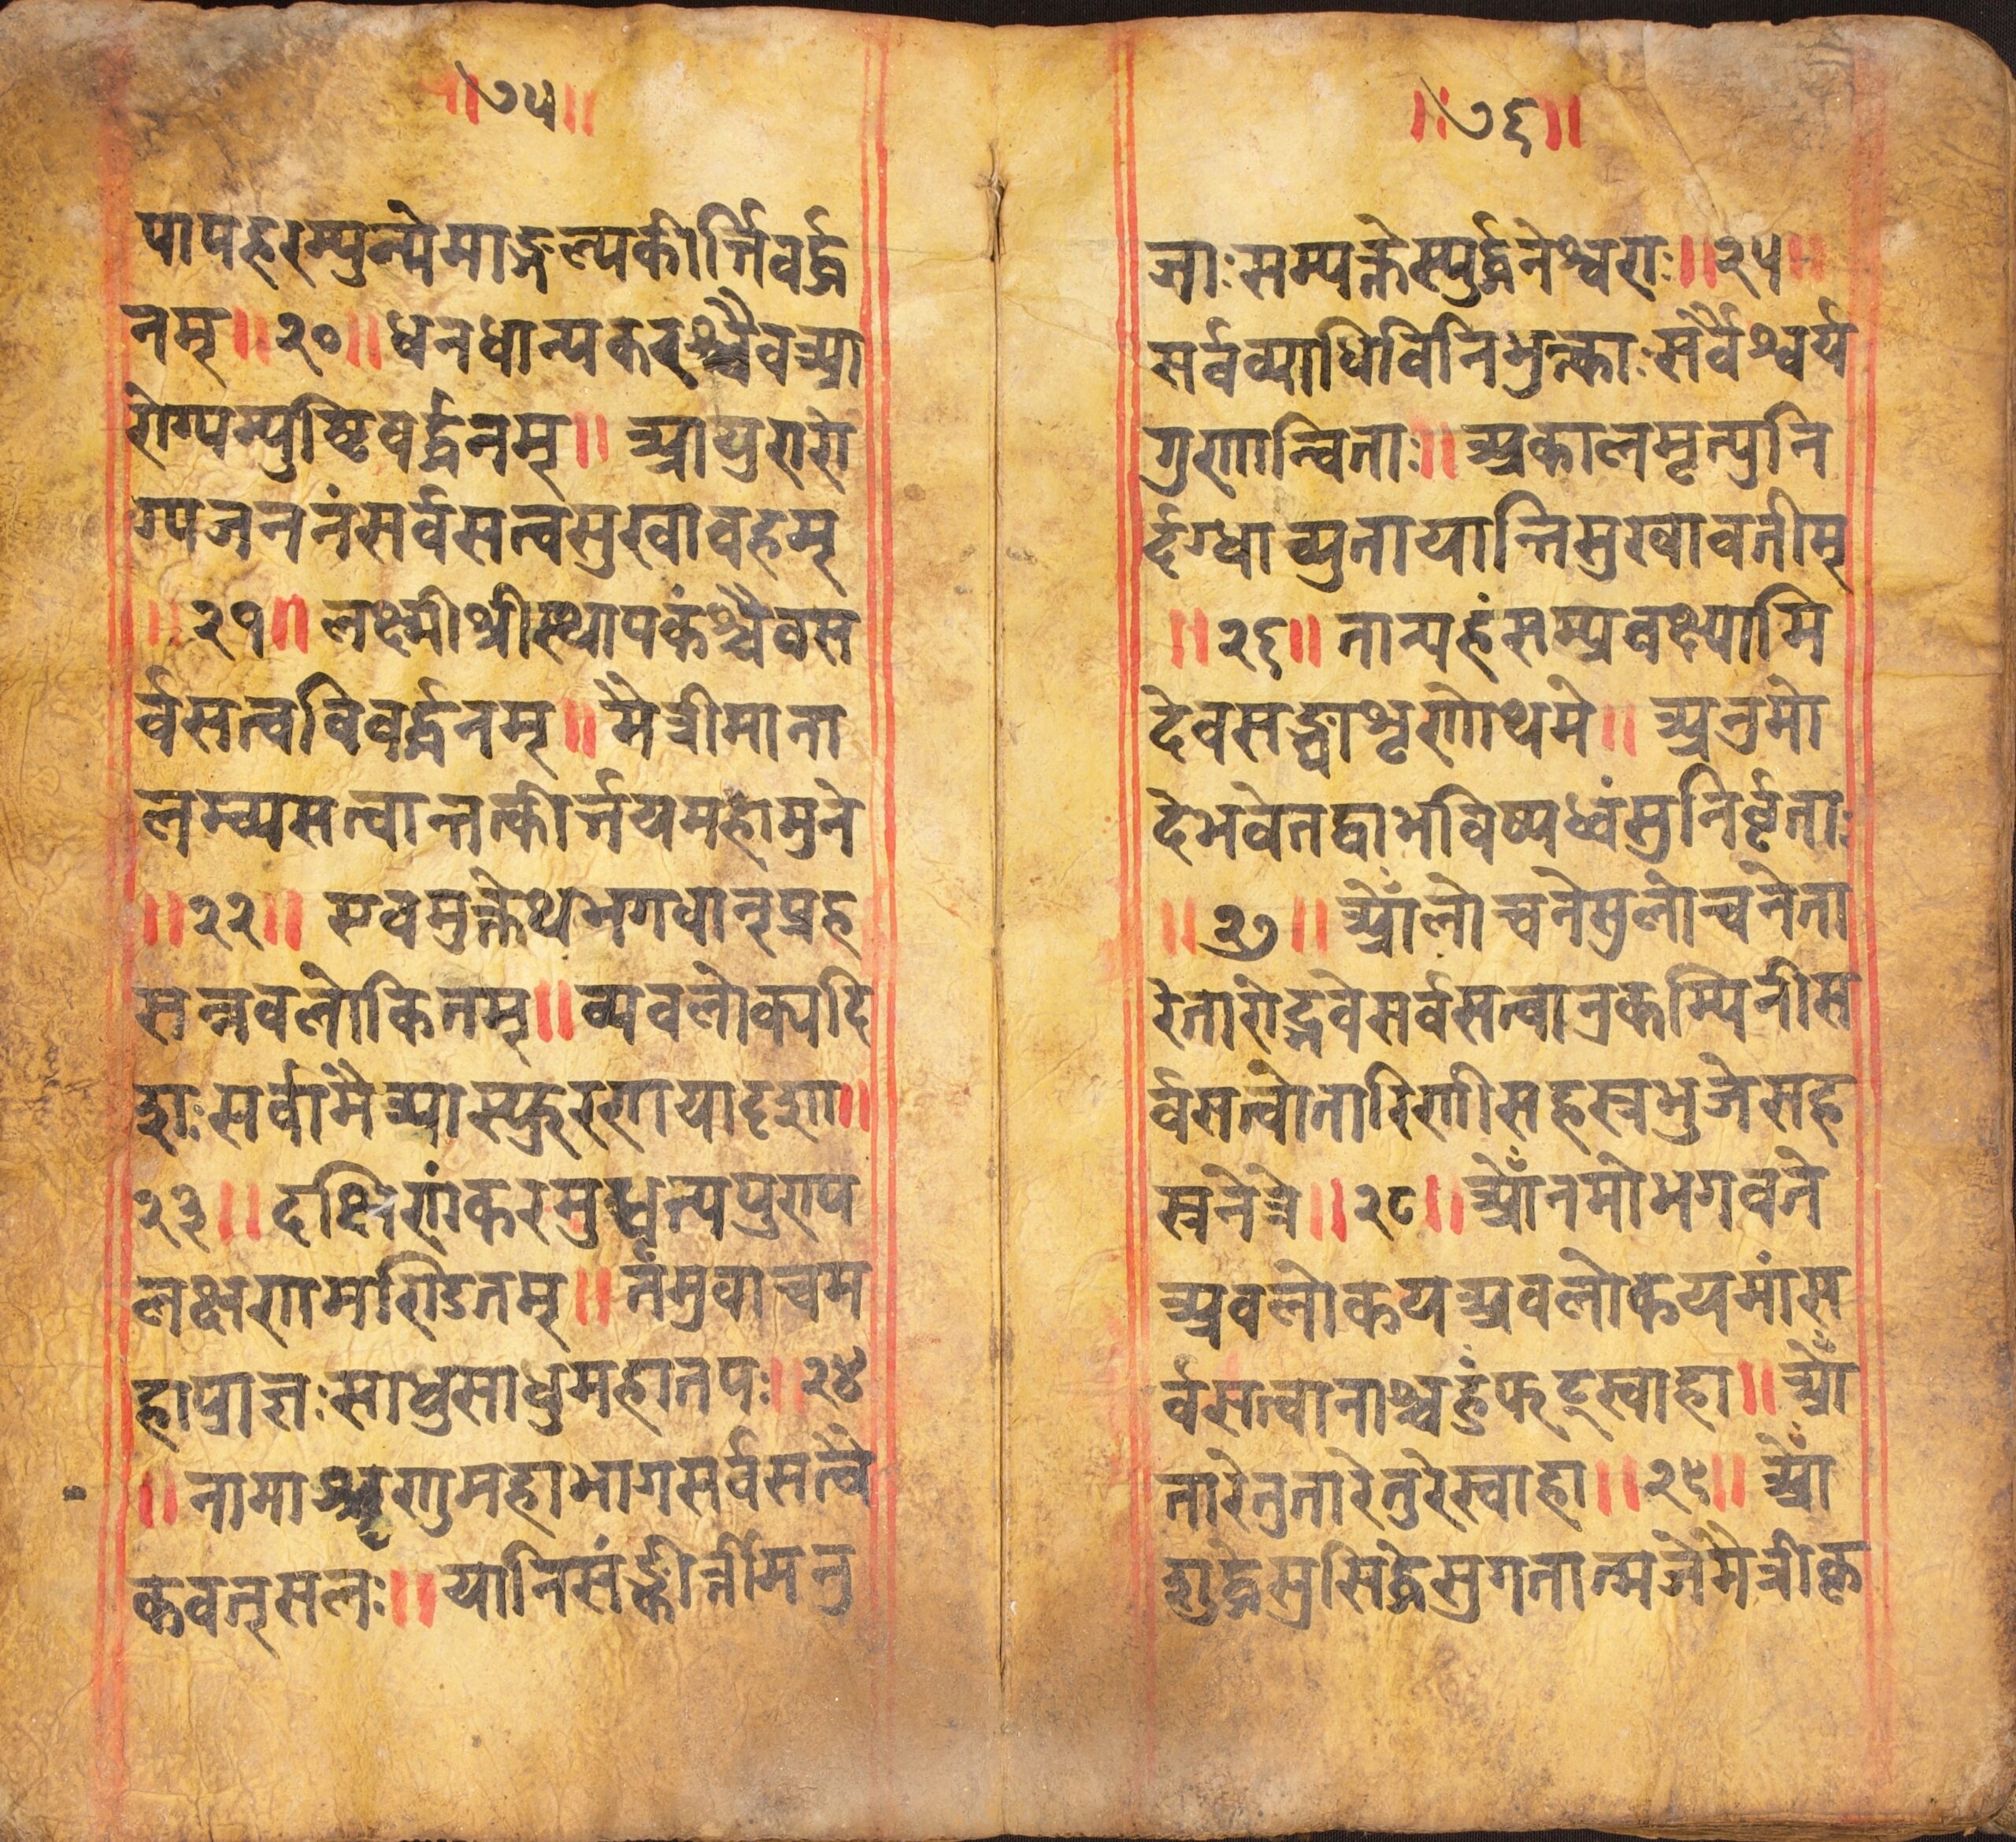 ॥७५॥
पापहरम्पुन्येमाङ्गल्यकीर्त्तिवर्द्ध
नम्॥२०॥धनधान्यकरश्चैवआ
रोग्यम्पुष्टिवर्द्धनम्॥आयुरारो
ग्यजननंसर्वसत्वसुखावहम्
॥२१॥लक्ष्मीश्रीस्थापकंश्चैवस
र्वसत्वविवर्द्धनम्॥मैत्रीमाना
लम्व्यसत्वान्तत्कीर्त्तयमहामुने
॥२२॥एवमुक्तेथभगवान्प्रह
सन्नवलोकितम्॥व्यवलोक्यदि
शःसर्वामैत्र्यास्फुरणयादृशा॥
२३॥दक्षिणंकरमुद्धृत्यपुण्य
लक्षणमण्डितम्॥तंमुवाचम
हाप्राज्ञःसाधुसाधुमहातपः॥२४
॥नामाश्शृणुमहाभागसर्वसत्वै
कवत्सलः॥यानिसंङ्कीर्त्तीमनु
॥७६॥
जाःसम्यक्तेस्युर्द्धनेश्वराः॥२५॥
सर्वव्याधिविनिमुक्ताःसर्वैश्वर्य
गुणान्विताः॥अकालमृत्युनि
र्दग्धाच्युतायान्तिसुखावतीम्
॥२६॥तान्यहंसम्प्रवक्ष्यामि
देवसङ्घाशृणोथमे॥अनुमो
देभवेतद्वाभविष्यध्वंसुनिर्वृताः
॥२७॥ओँलोचनेसुलोचनेता
रेतारोद्भवेसर्वसत्वानुकम्पिनीस
र्वसत्वोतारिणीसहस्रभुजेसह
स्रनेत्रे॥२८॥ओँनमोभगवते
अवलोकयअवलोकयमांस
र्वसत्वानाश्चहुंफट्स्वाहा॥ओँ
तारेतुतारेतुरेस्वाहा॥२९॥ओँ
शुद्धेसुसिद्धेसुगतात्मजेमैत्रीक्ल